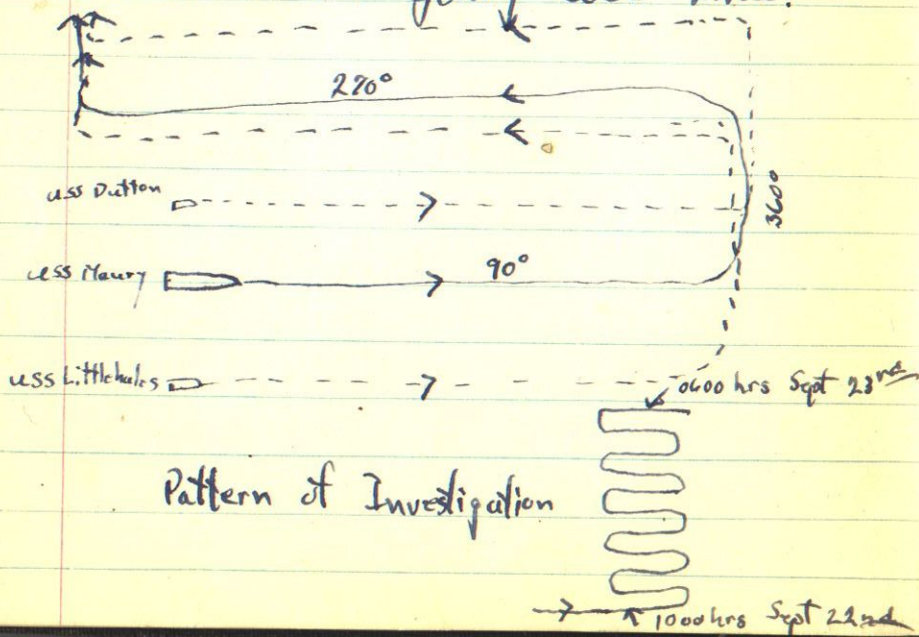 270°
USS Dutton
360°
USS Maury
90°
USS Littlehales
0600 hrs Sept 23rd
Pattern of Investigation
1000 hrs Sept 22nd